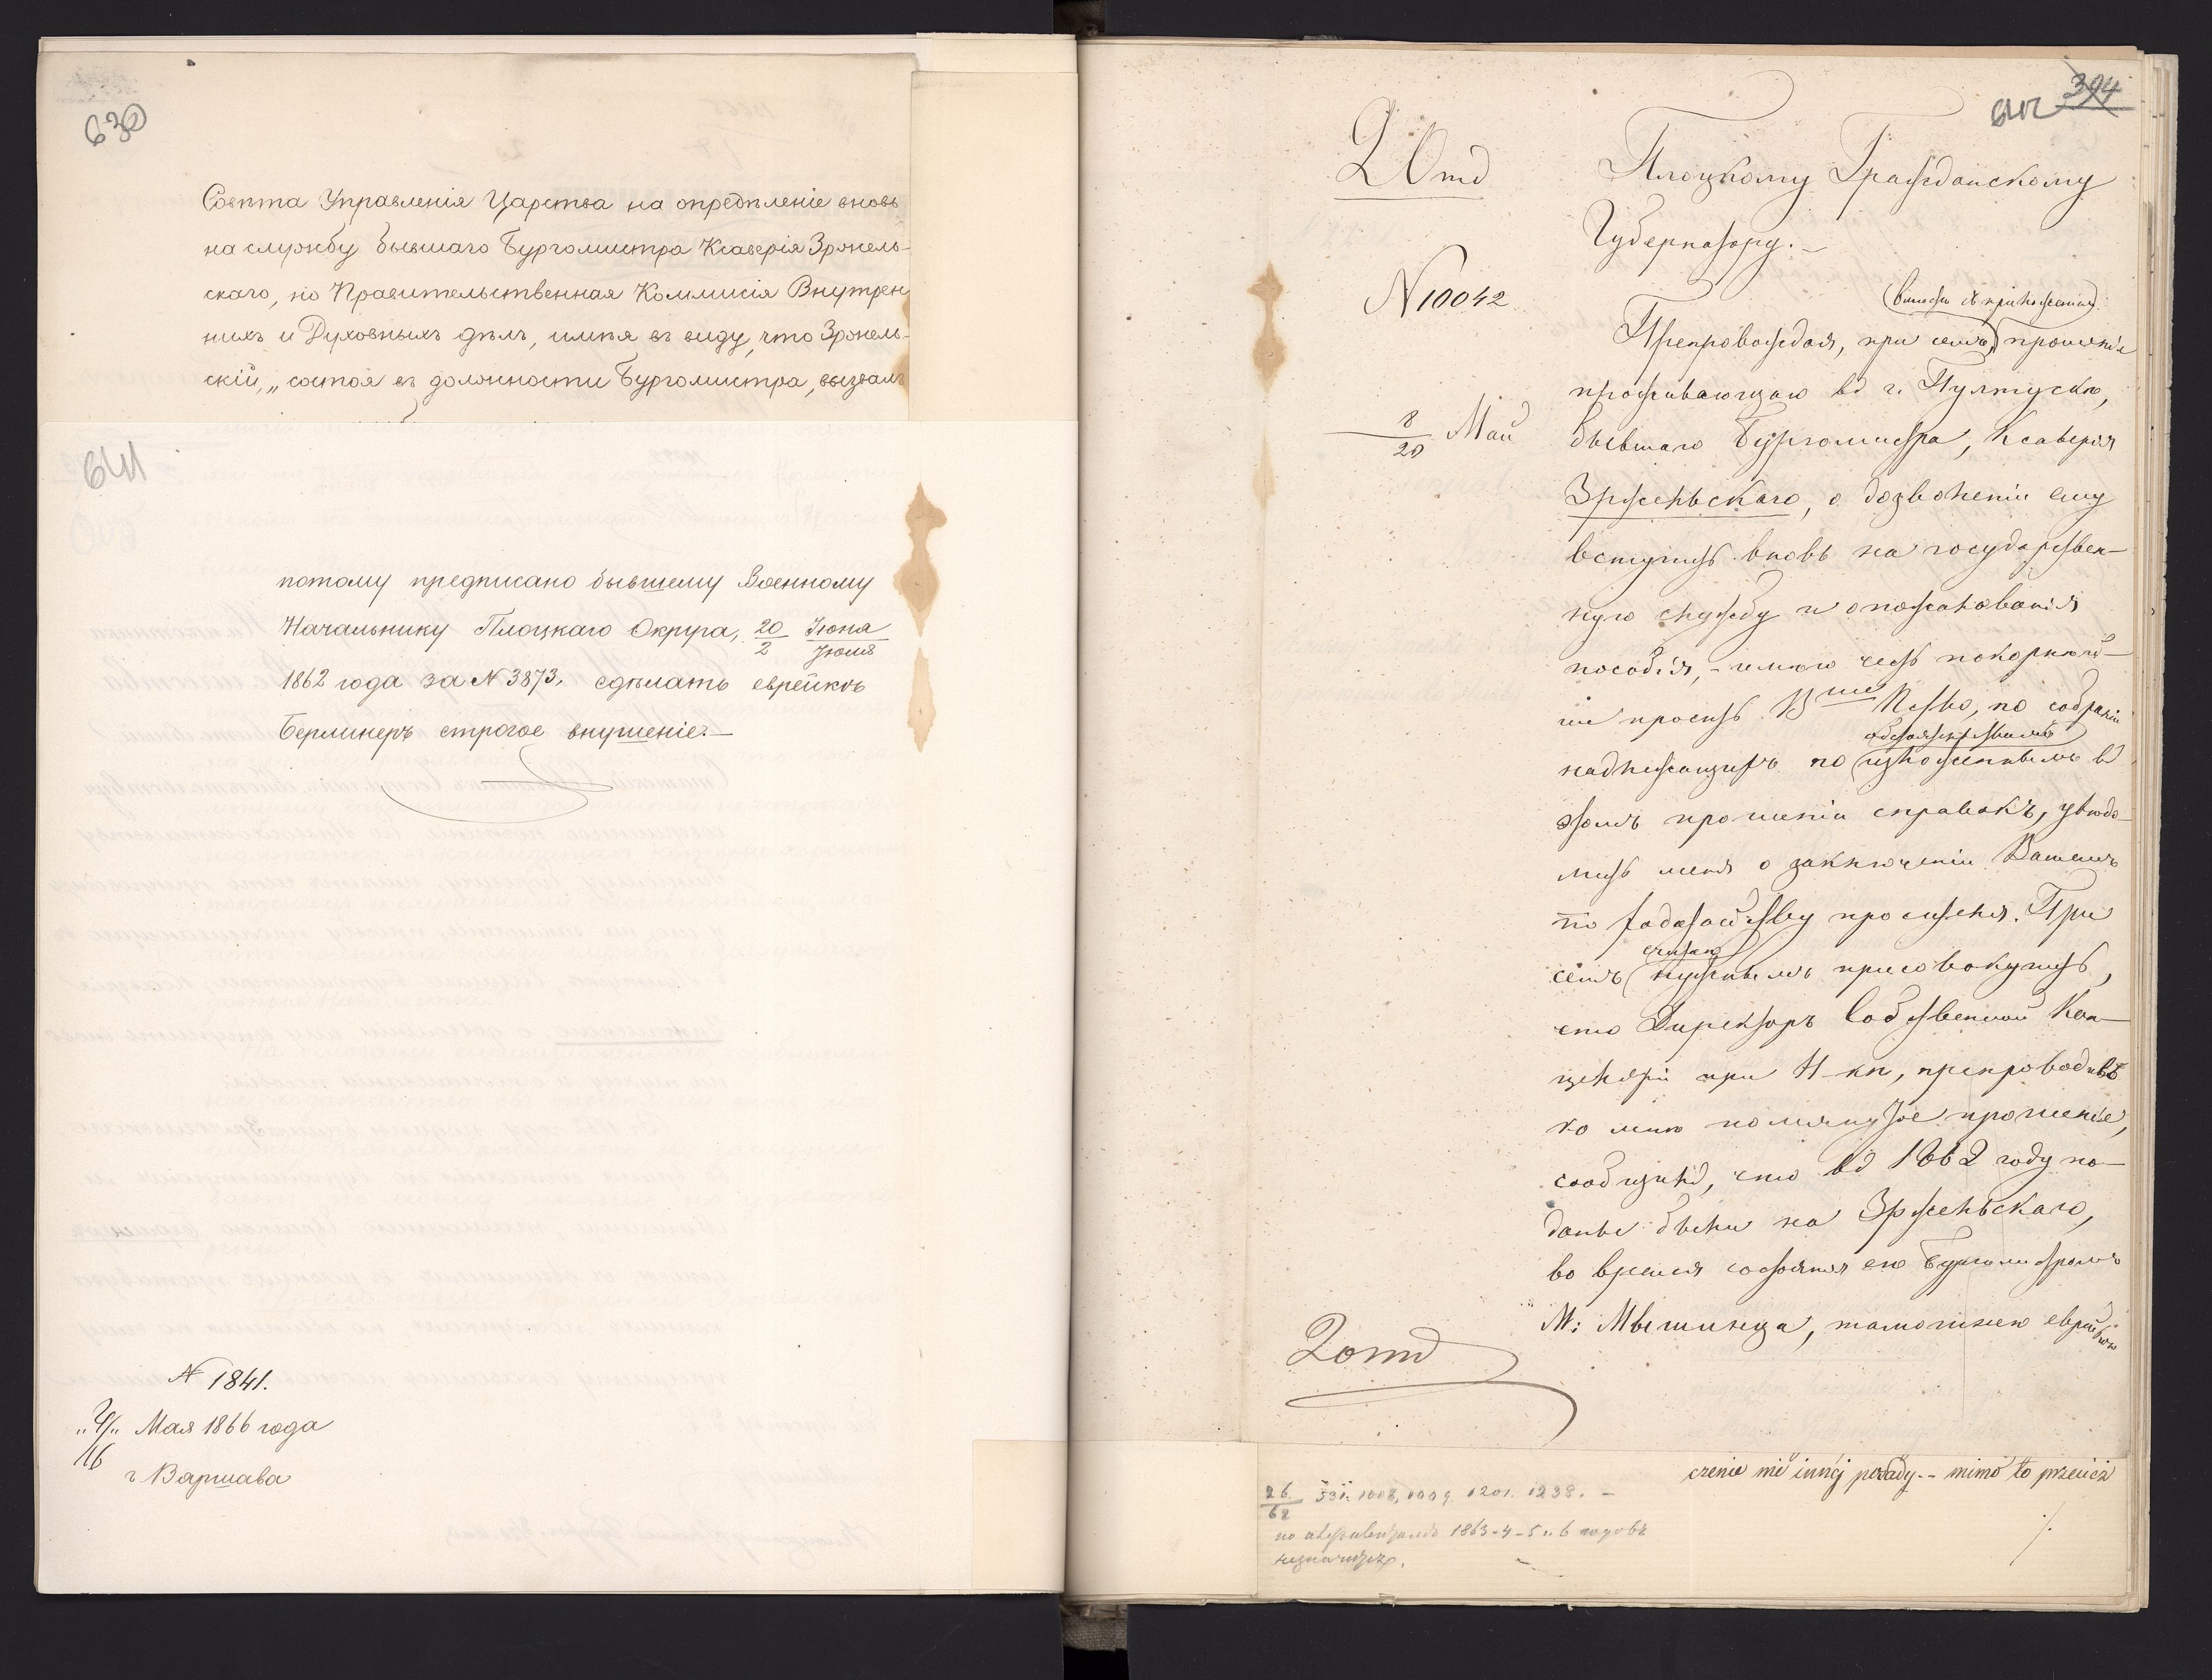 630
Совѣта Управленія Царства на опредѣленіе вновь
на службу бывшаго Бургомистра Ксаверія Зржель-
скаго, но Правительственная Коммисія Внутрен
нихъ и Духовныхъ дѣлъ, имѣя въ виду, что Зржель-
скій, „состоя въ должности Бургомистра, вызвалъ
641
потому предписано бывшему Военному
Начальнику Плоцкаго Округа, 20/2 Іюня/Іюля
1862 года за № 3873, сдѣлать еврейкѣ
Берлинеръ строгое внушеніе.—
№ 1841.
„4/16„ Мая 1866 года
г Варшава
394
642
2 Отд
Плоцкому Гражданскому
Губернатору.—
N 10042
(вмѣстѣ съ приложеніями)
Препровождая, при семъ, прошеніе
проживающаго въ г. Пултускѣ,
8/20 Мая
бывшаго Бургомистра, Ксаверія
Зржельскаго, о дозволеніи ему
вступить вновь на государствен-
ную службу и о пожалованіи
пособія, - имѣю честь покорнѣй-
ше просить В ше П-ство, по собраніи
обстоятельствамъ
надлежащихъ по изложеннымъ въ
этомъ прошеніи справокъ, увѣдо-
мить меня о заключеніи Вашемъ
по ходатайству просителя. При
считаю
семъ нужнымъ присовокупить,
что Директоръ Собственной Кан-
целяріи при Н-кѣ, препроводивъ
ко мнѣ помянутое прошеніе,
сообщилъ, что въ 1862 году по-
даны были на Зржельскаго,
во время состоянія его Бургомистромъ
М: Мышинца, тамошнею еврейкою
2 отд
czenie mie innéj posady.-- mimo to przecież
26/62 531. 1008, 1009. 1201. 1238. —
по 1863-4-5 и 6 годовъ
незначится.
./.